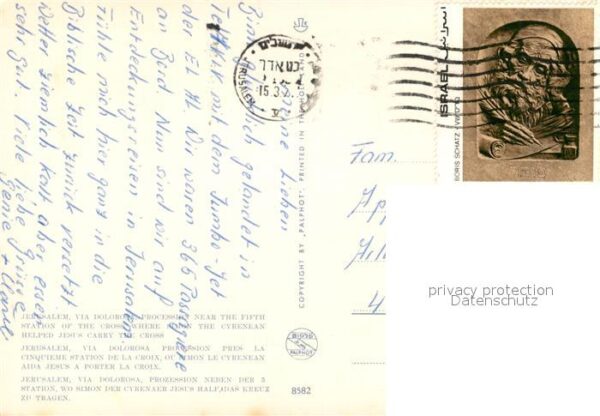 Meine Lieben
gelandet in
Tel Aviv mit dem Jumbo-Jet
der El Al Wir waren 366 Passagiere
an Bord Nun sind wir auf
Entdeckungsreisen in Jerusalem.
Fühle mich hier ganz in die
Biblische Zeit zurück versetzt
Wetter ziemlich kalt aber
sehr gut. Viele liebe Grüsse
Fam.
JERUSALEM
ISRAEL
BORIS SCHATZ
COPYRIGHT BY "PALPHOT", PRINTED IN THE HOLY LAND
privacy protection
Datenschutz
JERUSALEM, VIA DOLOROSA, PROCESSION NEAR THE FIFTH
STATION OF THE CROSS WHERE SIMON THE CYRENEAN
HELPED JESUS CARRY THE CROSS
JERUSALEM, VIA DOLOROSA PROCESSION PRES LA
CINQUIEME STATION DE LA CROIX, OU SIMON LE CYRENEAN
AIDA JESUS A PORTER LA CROIX.
JERUSALEM, VIA DOLOROSA, PROZESSION NEBEN DER 5
STATION, WO SIMON DER CYRENAER JESUS HALF, DAS KREUZ
ZU TRAGEN.
PALPHOT
8582